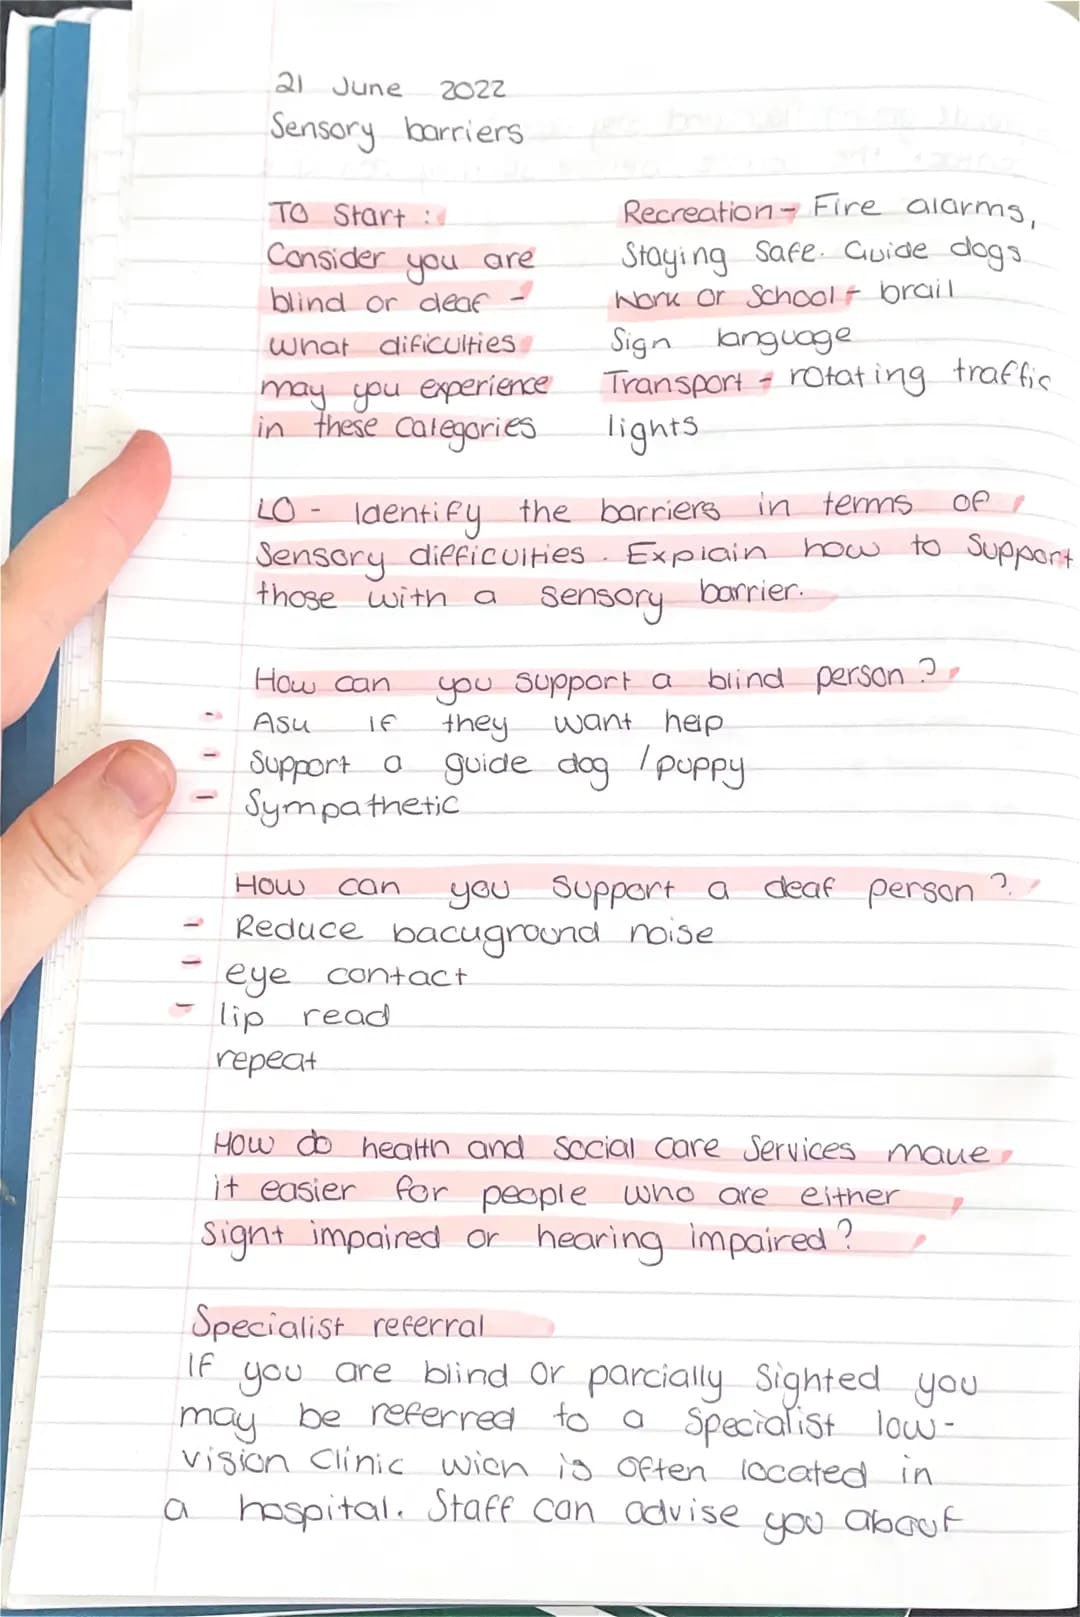 21 June 2022
Sensory barriers
To Start :
Consider you are
blind or deaf -
what dificulties
may you experience
in these Categories
Recreation - Fire alarms,
Staying Safe. Guide dogs
Work or School - brail
Sign language
Transport - rotating traffic
lights
LO - Identify the barriers in terms of
Sensory difficulties. Explain how to Support
those with a sensory barrier.
How can you support a blind person?
- Ask if they want help
- Support a guide dog / puppy
- Sympathetic
How can you support a deaf person?
- Reduce background noise
- eye contact
- lip read
repeat
How do health and Social Care Services make
it easier for people who are either
Sight impaired or hearing impaired?
Specialist referral
If you are blind or parcially Sighted you
may be referred to a Specialist low-
vision Clinic wich is often located in
a hospital. Staff can advise you about